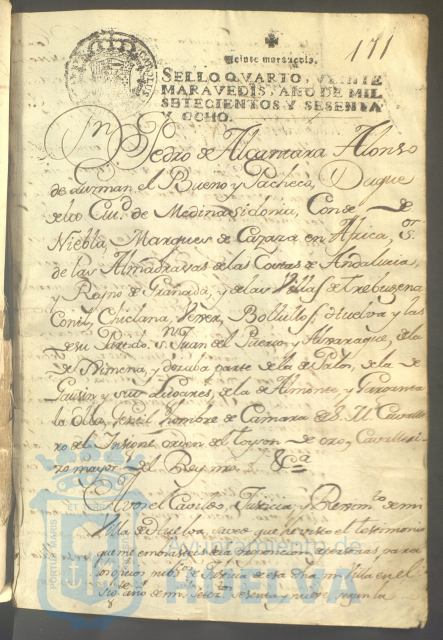 171
Veinte maravedis.
SELLO QVARTO, VEINTE
MARAVEDIS, AÑO DE MIL
SETECIENTOS Y SESENTA
Y OCHO.
Dn Pedro de Alcantara Alonso
de Guzman el Bueno y Pacheco, Duque
de la Ciud. de Medinasidonia, Conde de
Niebla, Marques de Cazaza en Africa, Sor.
de las Almadravas de las Costas de Andalucia,
y Reyno de Granada, y de las Villas de Trebugena
Conil, Chiclana, Vexer, Bollullos, Huelva y las
de su Partido, Sn. Juan del Puerto, y Alxaraque, de la
de Ximena, y de la de
Gausin y sus Lugares, de la de Almonte, y
la Olla, Gentil hombre de Camara de S. M. Cavalle
ro del Insigne orden del toyson de oro, Cavalleri
zo mayor del Reyno &ca
el Cavildo, Justicia, y Reximto. de mi
Villa de Huelva, que he visto el testimonio
que me
de Justicia de esa dha mi Villa en el
año de mil setezs. sesenta y nueve, segun la
PORTUS MARIS
Ayuntamiento de
HUELVA